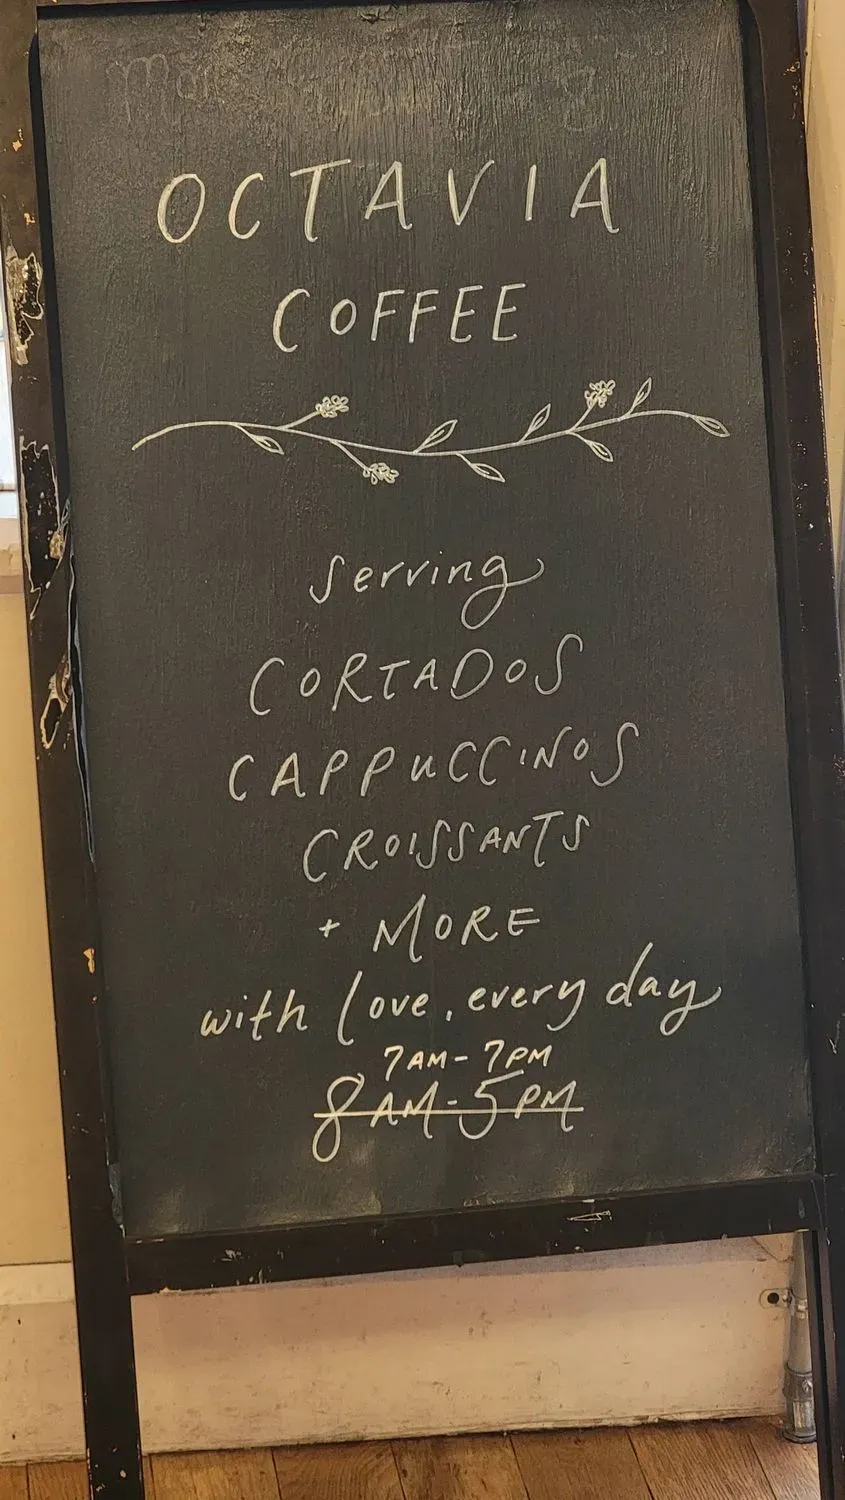 OCTAVIA
COFFEE
serving
CORTADOS
CAPPUCCINOS
CROISSANTS
+ MORE
with love, every day
7AM - 7PM
8AM - 5PM